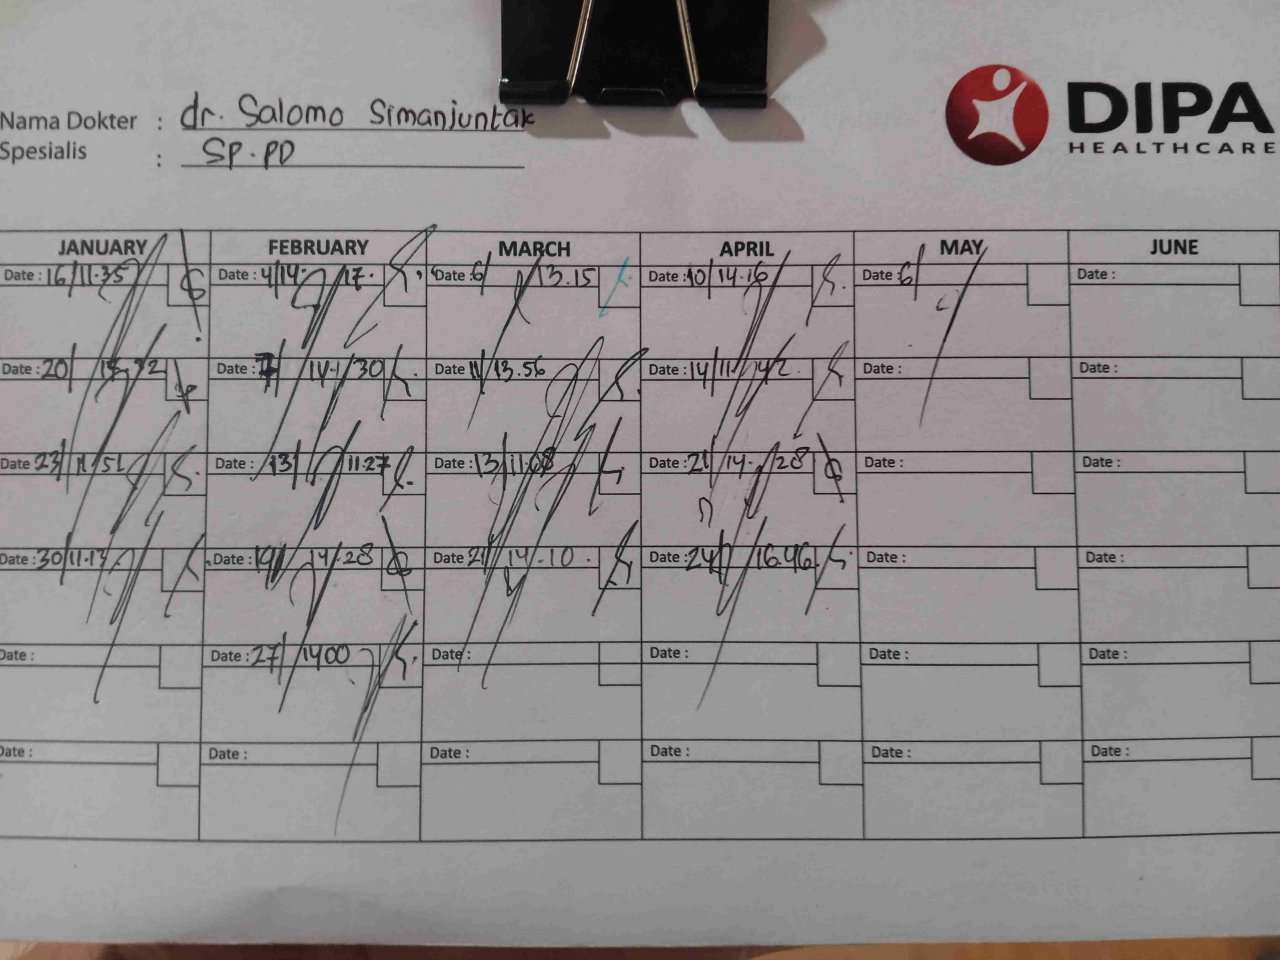 Nama Dokter : dr. Salomo Simanjuntak
Spesialis : SP.PD
DIPA
HEALTHCARE
JANUARY FEBRUARY MARCH APRIL MAY JUNE
Date : 16/11.35 Date : 4/14. 17. Date : 6/ 13.15 Date : 10/14.16 Date : 6/ Date :
Date : 20/ Date : 7/ 14 30 Date 11/13.56 Date : 14/11 Date : Date :
Date 23/11 51 Date : 13/ 11.27 Date : 13/11.08 Date : 21/14. 28 Date : Date :
Date : 30/11.13 Date : 19/ 14.28 Date 21/14.10. Date : 24/ 16.46 Date : Date :
Date : Date : 27/ 1400 Date : Date : Date : Date :
Date : Date : Date : Date : Date : Date :